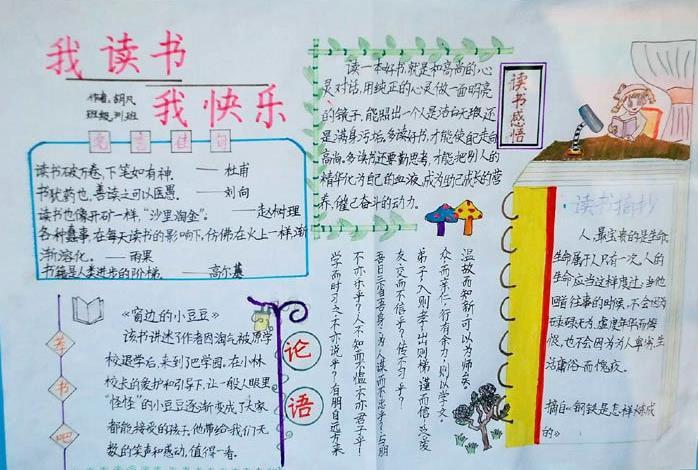 我读书
我快乐
作者:胡凡
班级
名言佳句
读书破万卷,下笔如有神。——杜甫
书犹药也,善读之可以医愚。——刘向
读书也像开矿一样,“沙里淘金”。——赵树理
各种蠢事,在每天读书的影响下,仿佛在火上一样,渐
渐溶化。——雨果
书籍是人类进步的阶梯。——高尔基
读书感悟
读一本好书,就是和高尚的心
灵对话,用纯正的心灵做一面明亮
的镜子,能照出一个人是洁白无瑕还
是满身污垢。多读好书,才能使自己走向
高尚。多读书还要勤思考,才能把别人的
精华化为自己的血液,成为自己成长的营
养,催己奋斗的动力。
读书摘抄
人最宝贵的是生命,
生命属于人只有一次,人的
生命应当这样度过:当他
回首往事的时候,不会因为
碌碌无为,虚度年华而悔
恨,也不会因为为人卑劣,生
活庸俗而愧疚。
摘自《钢铁是怎样炼成
的》
书吧
《窗边的小豆豆》
该书讲述了作者因淘气被原学
校退学后,来到巴学园。在小林
校长的爱护和引导下,让一般人眼里
“怪怪”的小豆豆逐渐变成了大家
都能接受的孩子,他带给我们无
数的笑声和感动,值得一看。
论语
温故而知新,可以为师矣。
众而亲仁,行有余力,则以学文。
弟子入则孝,出则悌,谨而信,泛爱
友交而不信乎?传不习乎?
吾日三省吾身:为人谋而不忠乎?与朋
不亦乐乎?人不知而不愠,不亦君子乎?
学而时习之,不亦说乎?有朋自远方来